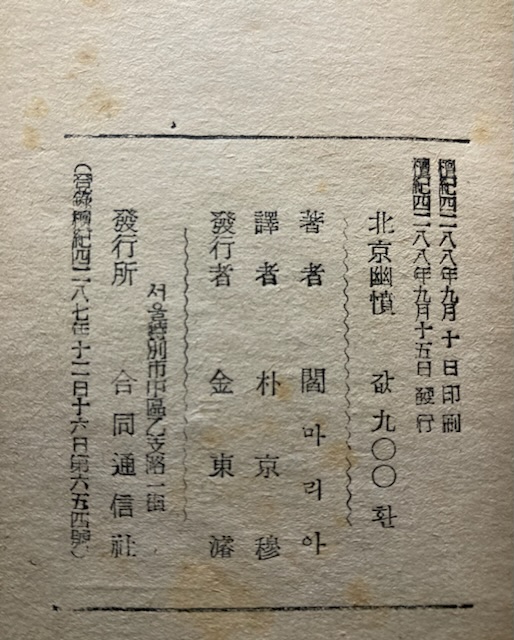 檀紀四二八八年九月十日印刷
檀紀四二八八年九月十五日發行
北京幽憤 값 九〇〇환
著者 閻마리아
譯者 朴京穆
發行者 金東濬
서울特別市中區乙支路一街
發行所 合同通信社
(登錄檀紀四二八七年十二月十六日第六五四號)